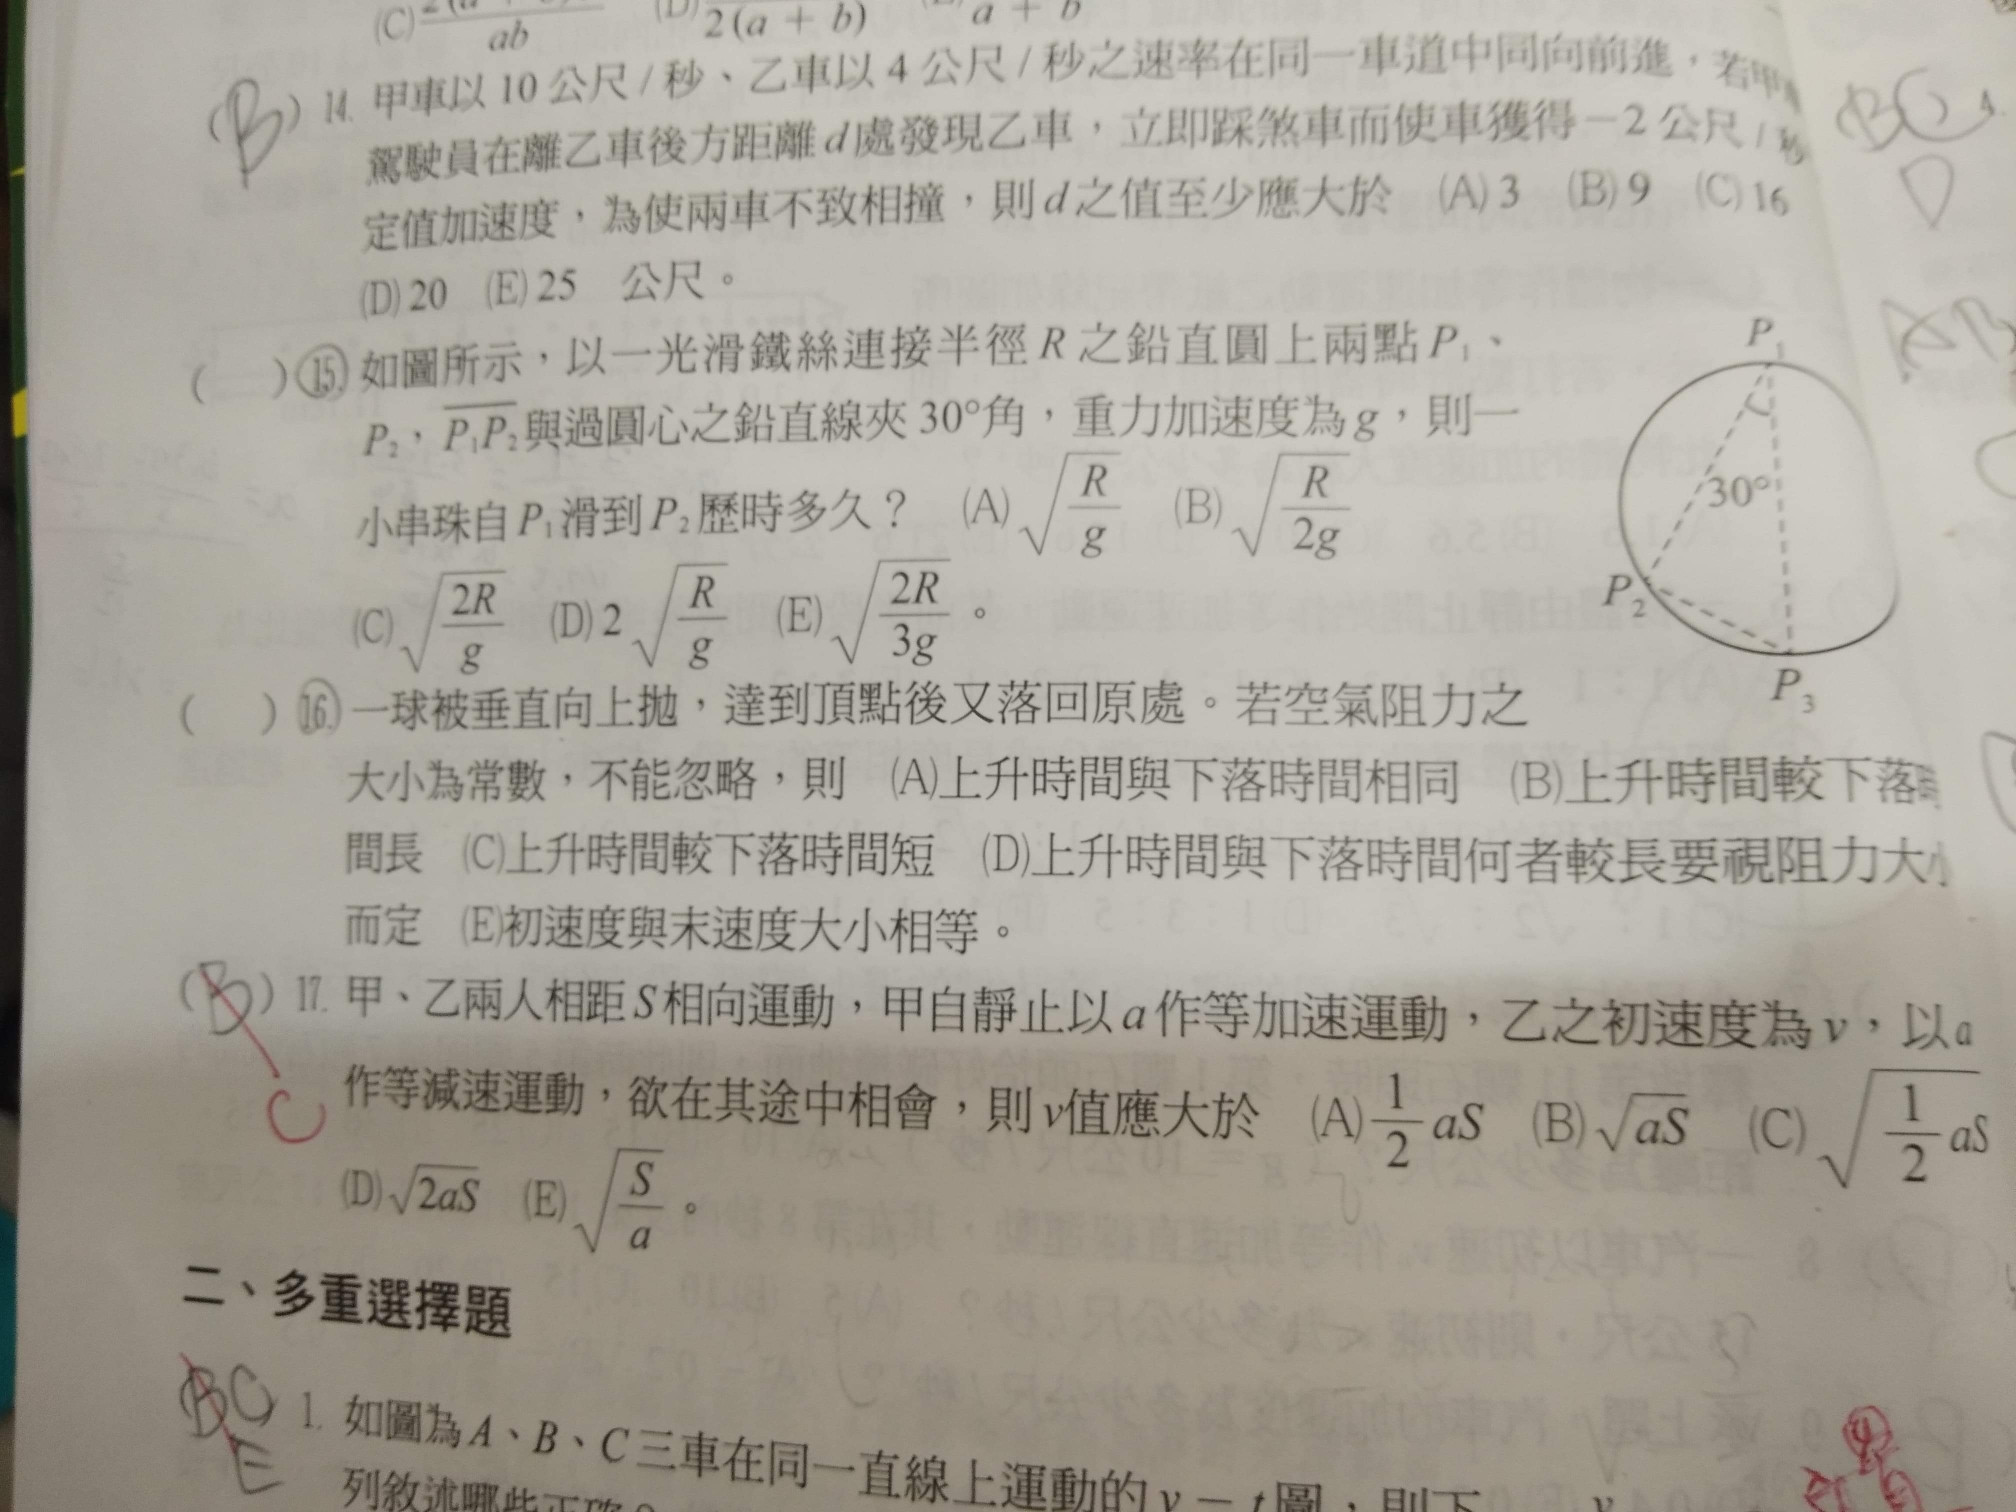 (C) ab (D) 2(a + b) a + b
(B) 14. 甲車以 10 公尺 / 秒、乙車以 4 公尺 / 秒之速率在同一車道中同向前進，若甲
駕駛員在離乙車後方距離 d 處發現乙車，立即踩煞車而使車獲得 −2 公尺 / 秒
定值加速度，為使兩車不致相撞，則 d 之值至少應大於 (A) 3 (B) 9 (C) 16
(D) 20 (E) 25 公尺。
( ) 15. 如圖所示，以一光滑鐵絲連接半徑 R 之鉛直圓上兩點 P₁、
P₂，P₁P₂ 與過圓心之鉛直線夾 30°角，重力加速度為 g，則一
小串珠自 P₁ 滑到 P₂ 歷時多久？ (A) √(R/g) (B) √(R/2g)
(C) √(2R/g) (D) 2√(R/g) (E) √(2R/3g) 。
P₁
30°
P₂
P₃
( ) 16. 一球被垂直向上拋，達到頂點後又落回原處。若空氣阻力之
大小為常數，不能忽略，則 (A)上升時間與下落時間相同 (B)上升時間較下落時
間長 (C)上升時間較下落時間短 (D)上升時間與下落時間何者較長要視阻力大小
而定 (E)初速度與末速度大小相等。
(B) 17. 甲、乙兩人相距 S 相向運動，甲自靜止以 a 作等加速運動，乙之初速度為 v，以 a
C
作等減速運動，欲在其途中相會，則 v值應大於 (A) 1/2 aS (B) √aS (C) √(1/2 aS)
(D) √2aS (E) √(S/a) 。
二、多重選擇題
BC
E
1. 如圖為 A、B、C 三車在同一直線上運動的 v − t 圖，則下
列敘述哪些正確？